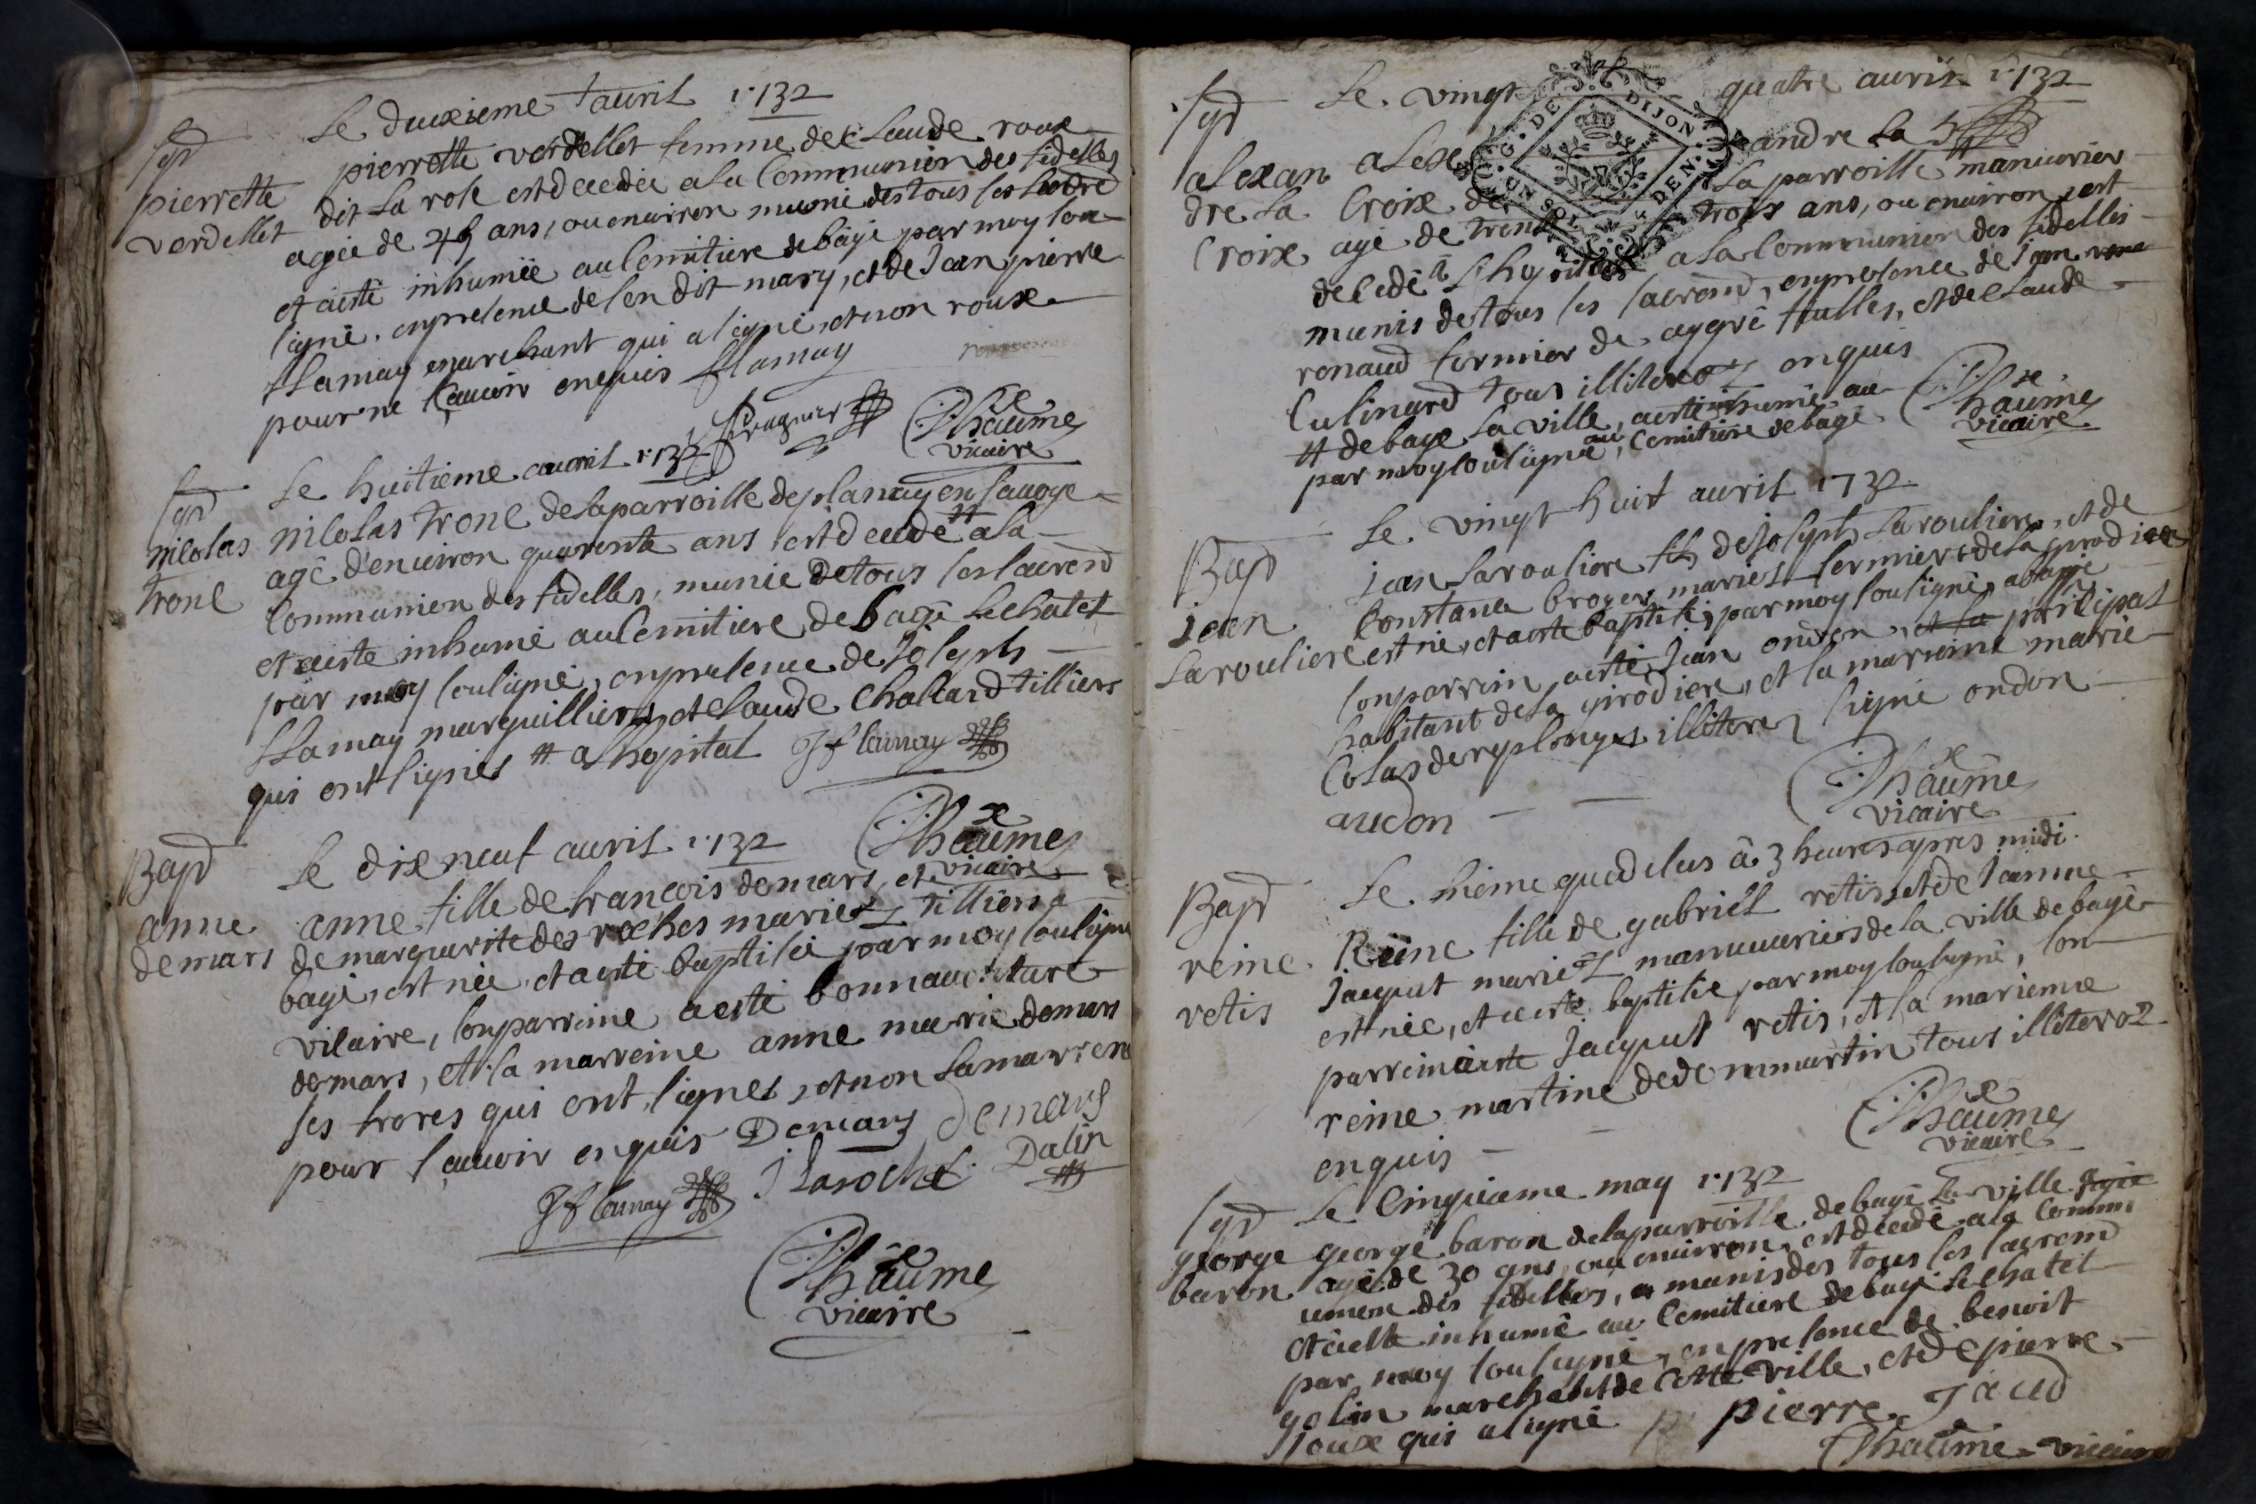 Le deuxieme avril 1732
Sep
pierrette
verdellet
pierrette verdellet femme de Claude roux
dit La rose est decedée a la Communion des fidelles
agée de 45 ans, ou environ munie des tous les
et a esté inhumée au Cemitiere de bâgé par moy sou
signé, en presence de son dit mary, et de Jean pierre
flamay marchant qui a signé, et non roux
pour ne sçauoir enquis flamay
Thaume
vicaire
Sep
nicolas
trone
Le huitieme auril 1732
nicolas trone de la parroisse de planay en sauoye
agé d'enuiron quarente ans est decedé # a la
Communion des fidelles, munie de tous les sacrend
et a esté inhumé au Cemitiere de bagé Le chatel
par moy sousigné, en presence de Joseph
flamay marguilliers, et Claude Challard tilliers
qui ont signés # a lhopital J flamay
Thaume
vicaire
Bapt
anne
demars
Le dix neuf auril 1732
anne fille de francois demars, et
de marguarite des roches mariez tilliers a
bagé, est née, et a esté baptisée par moy sousigné
vicaire, son parreine a esté bonnauenture
demars, et sa marreine anne marie demars
ses freres qui ont signes, et non la marrene
pour sçauoir enquis Demars demars
J Laroche Dalin
J flamay
Thaume
vicaire
Sep
alexan
dre La
Croix
Le vingt quatre auril 1732
G. DE DIJON
UN SOL DEN.
alexandre La
Croix de La parroisse manuurier
agé de trente trois ans, ou enuiron, est
decedé a l'hopital, a la Communion des fidelles
munis de tous les sacrend, en presence de
renaud fermier de aygre feulles, et de Claude
Culinard tous illiterez enquis
# de bage La ville, a esté inhumé au
par moy sousigné, au Cemitiere de bagé
Thaume
vicaire
Bapt
jean
Larouliere
Le vingt huit auril 1732
jean Larouliere fils de joseph Larouliere, et de
Constance broyer mariés fermiers de la
est né, et a esté baptisé, par moy sousigné, a bagé
son parrain a esté Jean ondon, et la principal
habitant de la girodiere, et la marreine marie
Colas de replonges illiterez signé ondon
audon
Thaume
vicaire
Bapt
reine
retis
Le meme que dessus à 3 heures apres midi
Reine fille de gabriel retis, et de Jeanne
Jacquet mariez manuuriers de la ville de bagé
est née, et a esté baptisée par moy sousigné, son
parrein a este Jacquet retis, et la marienne
reine martine de dommartin tous illiterez
enquis
Thaume
vicaire
Sep
george
baron
Le Cinquieme may 1732
george baron de la parroisse de bagé La ville
agé de 30 ans, ou enuiron, est decedé a la Comm
union des fidelles, munis des tous les sacrem
et a esté inhumé au Cemitiere de bagé Le chatel
par moy sousigné, en presence de benoit
golin marchant de Cette ville, et de pierre
Joux qui a signé pierre Jaud
Thaume vicaire